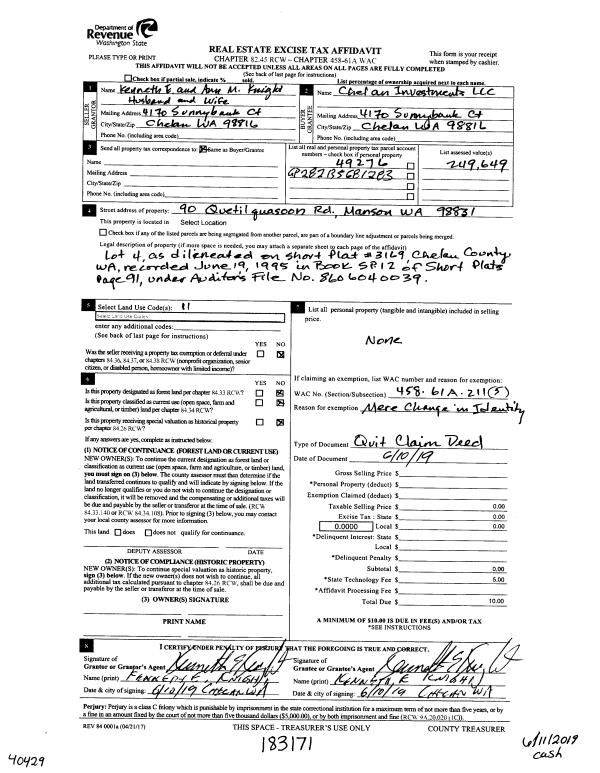 Department of
Revenue
Washington State
REAL ESTATE EXCISE TAX AFFIDAVIT
PLEASE TYPE OR PRINT
CHAPTER 82.45 RCW – CHAPTER 458-61A WAC
This form is your receipt
when stamped by cashier.
THIS AFFIDAVIT WILL NOT BE ACCEPTED UNLESS ALL AREAS ON ALL PAGES ARE FULLY COMPLETED
(See back of last page for instructions)
Check box if partial sale, indicate % sold.
List percentage of ownership acquired next to each name.
1 Name Kenneth E and Ann M. Knight
Husband and Wife
SELLER GRANTOR
Mailing Address 4170 Sunnybank Ct
City/State/Zip Chelan WA 98816
Phone No. (including area code)
2 Name Chelan Investments LLC
BUYER GRANTEE
Mailing Address 4170 Sunnybank Ct
City/State/Zip Chelan WA 98816
Phone No. (including area code)
3 Send all property tax correspondence to: Same as Buyer/Grantee
Name
Mailing Address
City/State/Zip
Phone No. (including area code)
List all real and personal property tax parcel account
numbers – check box if personal property
49276
List assessed value(s)
249,649
4 Street address of property: 90 Quetilquasoon Rd, Manson WA 98831
This property is located in Select Location
Check box if any of the listed parcels are being segregated from another parcel, are part of a boundary line adjustment or parcels being merged.
Legal description of property (if more space is needed, you may attach a separate sheet to each page of the affidavit)
Lot 4, as dileneated on short Plat #3169 Chelan County,
WA, recorded June 19, 1995 in Book SP12 of Short Plats
Page 91, under Auditor's File No. 8606040039.
5 Select Land Use Code(s): 11
Select Land Use Codes
enter any additional codes:
(See back of last page for instructions)
YES NO
Was the seller receiving a property tax exemption or deferral under
chapters 84.36, 84.37, or 84.38 RCW (nonprofit organization, senior
citizen, or disabled person, homeowner with limited income)?
6
YES NO
Is this property designated as forest land per chapter 84.33 RCW?
Is this property classified as current use (open space, farm and
agricultural, or timber) land per chapter 84.34 RCW?
Is this property receiving special valuation as historical property
per chapter 84.26 RCW?
If any answers are yes, complete as instructed below.
(1) NOTICE OF CONTINUANCE (FOREST LAND OR CURRENT USE)
NEW OWNER(S): To continue the current designation as forest land or
classification as current use (open space, farm and agriculture, or timber) land,
you must sign on (3) below. The county assessor must then determine if the
land transferred continues to qualify and will indicate by signing below. If the
land no longer qualifies or you do not wish to continue the designation or
classification, it will be removed and the compensating or additional taxes will
be due and payable by the seller or transferor at the time of sale. (RCW
84.33.140 or RCW 84.34.108). Prior to signing (3) below, you may contact
your local county assessor for more information.
This land does does not qualify for continuance.
DEPUTY ASSESSOR DATE
(2) NOTICE OF COMPLIANCE (HISTORIC PROPERTY)
NEW OWNER(S): To continue special valuation as historic property,
sign (3) below. If the new owner(s) does not wish to continue, all
additional tax calculated pursuant to chapter 84.26 RCW, shall be due and
payable by the seller or transferor at the time of sale.
(3) OWNER(S) SIGNATURE
PRINT NAME
7 List all personal property (tangible and intangible) included in selling
price.
None
If claiming an exemption, list WAC number and reason for exemption:
WAC No. (Section/Subsection) 458.61A.211(5)
Reason for exemption Mere Change in Identity
Type of Document Quit Claim Deed
Date of Document 6/10/19
Gross Selling Price $
*Personal Property (deduct) $
Exemption Claimed (deduct) $
Taxable Selling Price $ 0.00
Excise Tax : State $ 0.00
0.0000 Local $ 0.00
*Delinquent Interest: State $
Local $
*Delinquent Penalty $
Subtotal $ 0.00
*State Technology Fee $ 5.00
*Affidavit Processing Fee $
Total Due $ 10.00
A MINIMUM OF $10.00 IS DUE IN FEE(S) AND/OR TAX
*SEE INSTRUCTIONS
8 I CERTIFY UNDER PENALTY OF PERJURY THAT THE FOREGOING IS TRUE AND CORRECT.
Signature of
Grantor or Grantor's Agent
Name (print) KENNETH E. KNIGHT
Date & city of signing: 6/10/19 CHELAN WA
Signature of
Grantee or Grantee's Agent
Name (print) KENNETH E KNIGHT
Date & city of signing: 6/10/19 CHELAN WA
Perjury: Perjury is a class C felony which is punishable by imprisonment in the state correctional institution for a maximum term of not more than five years, or by
a fine in an amount fixed by the court of not more than five thousand dollars ($5,000.00), or by both imprisonment and fine (RCW 9A.20.020 (1C)).
REV 84 0001a (04/21/17)
THIS SPACE - TREASURER'S USE ONLY
COUNTY TREASURER
183171
6/11/2019
cash
40429